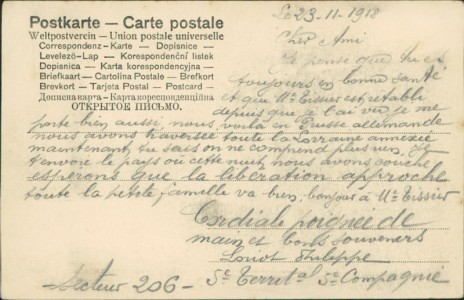 Postkarte — Carte postale
Weltpostverein — Union postale universelle
Correspondenz-Karte — Dopisnice
Levelező-Lap — Korespondenční lístek
Dopisnica — Karta korespondencyjna
Briefkaart — Cartolina Postale — Brefkort
Brevkort — Tarjeta Postal — Postcard
Дописна карта — Карта кореспонденційна
ОТКРЫТОЕ ПИСЬМО.
Le 23-11-1918
Cher Ami
Je pense que tu es
toujours en bonne santé
et que Mr Tissier est rétabli
depuis que je l'ai vu je me
porte bien aussi, nous voilà en Prusse allemande
nous avons traversée toute la Lorraine annexée
maintenant tu sais on ne comprend plus rien, je
t'envoie le pays où cette nuit nous avons couché
esperons que la libération approche
toute la petite famille va bien, bonjour à Mr Tissier
Cordiale poignée de
main et bons souvenirs
Loriot Philippe
5e Territal 5e Compagnie
Secteur 206-